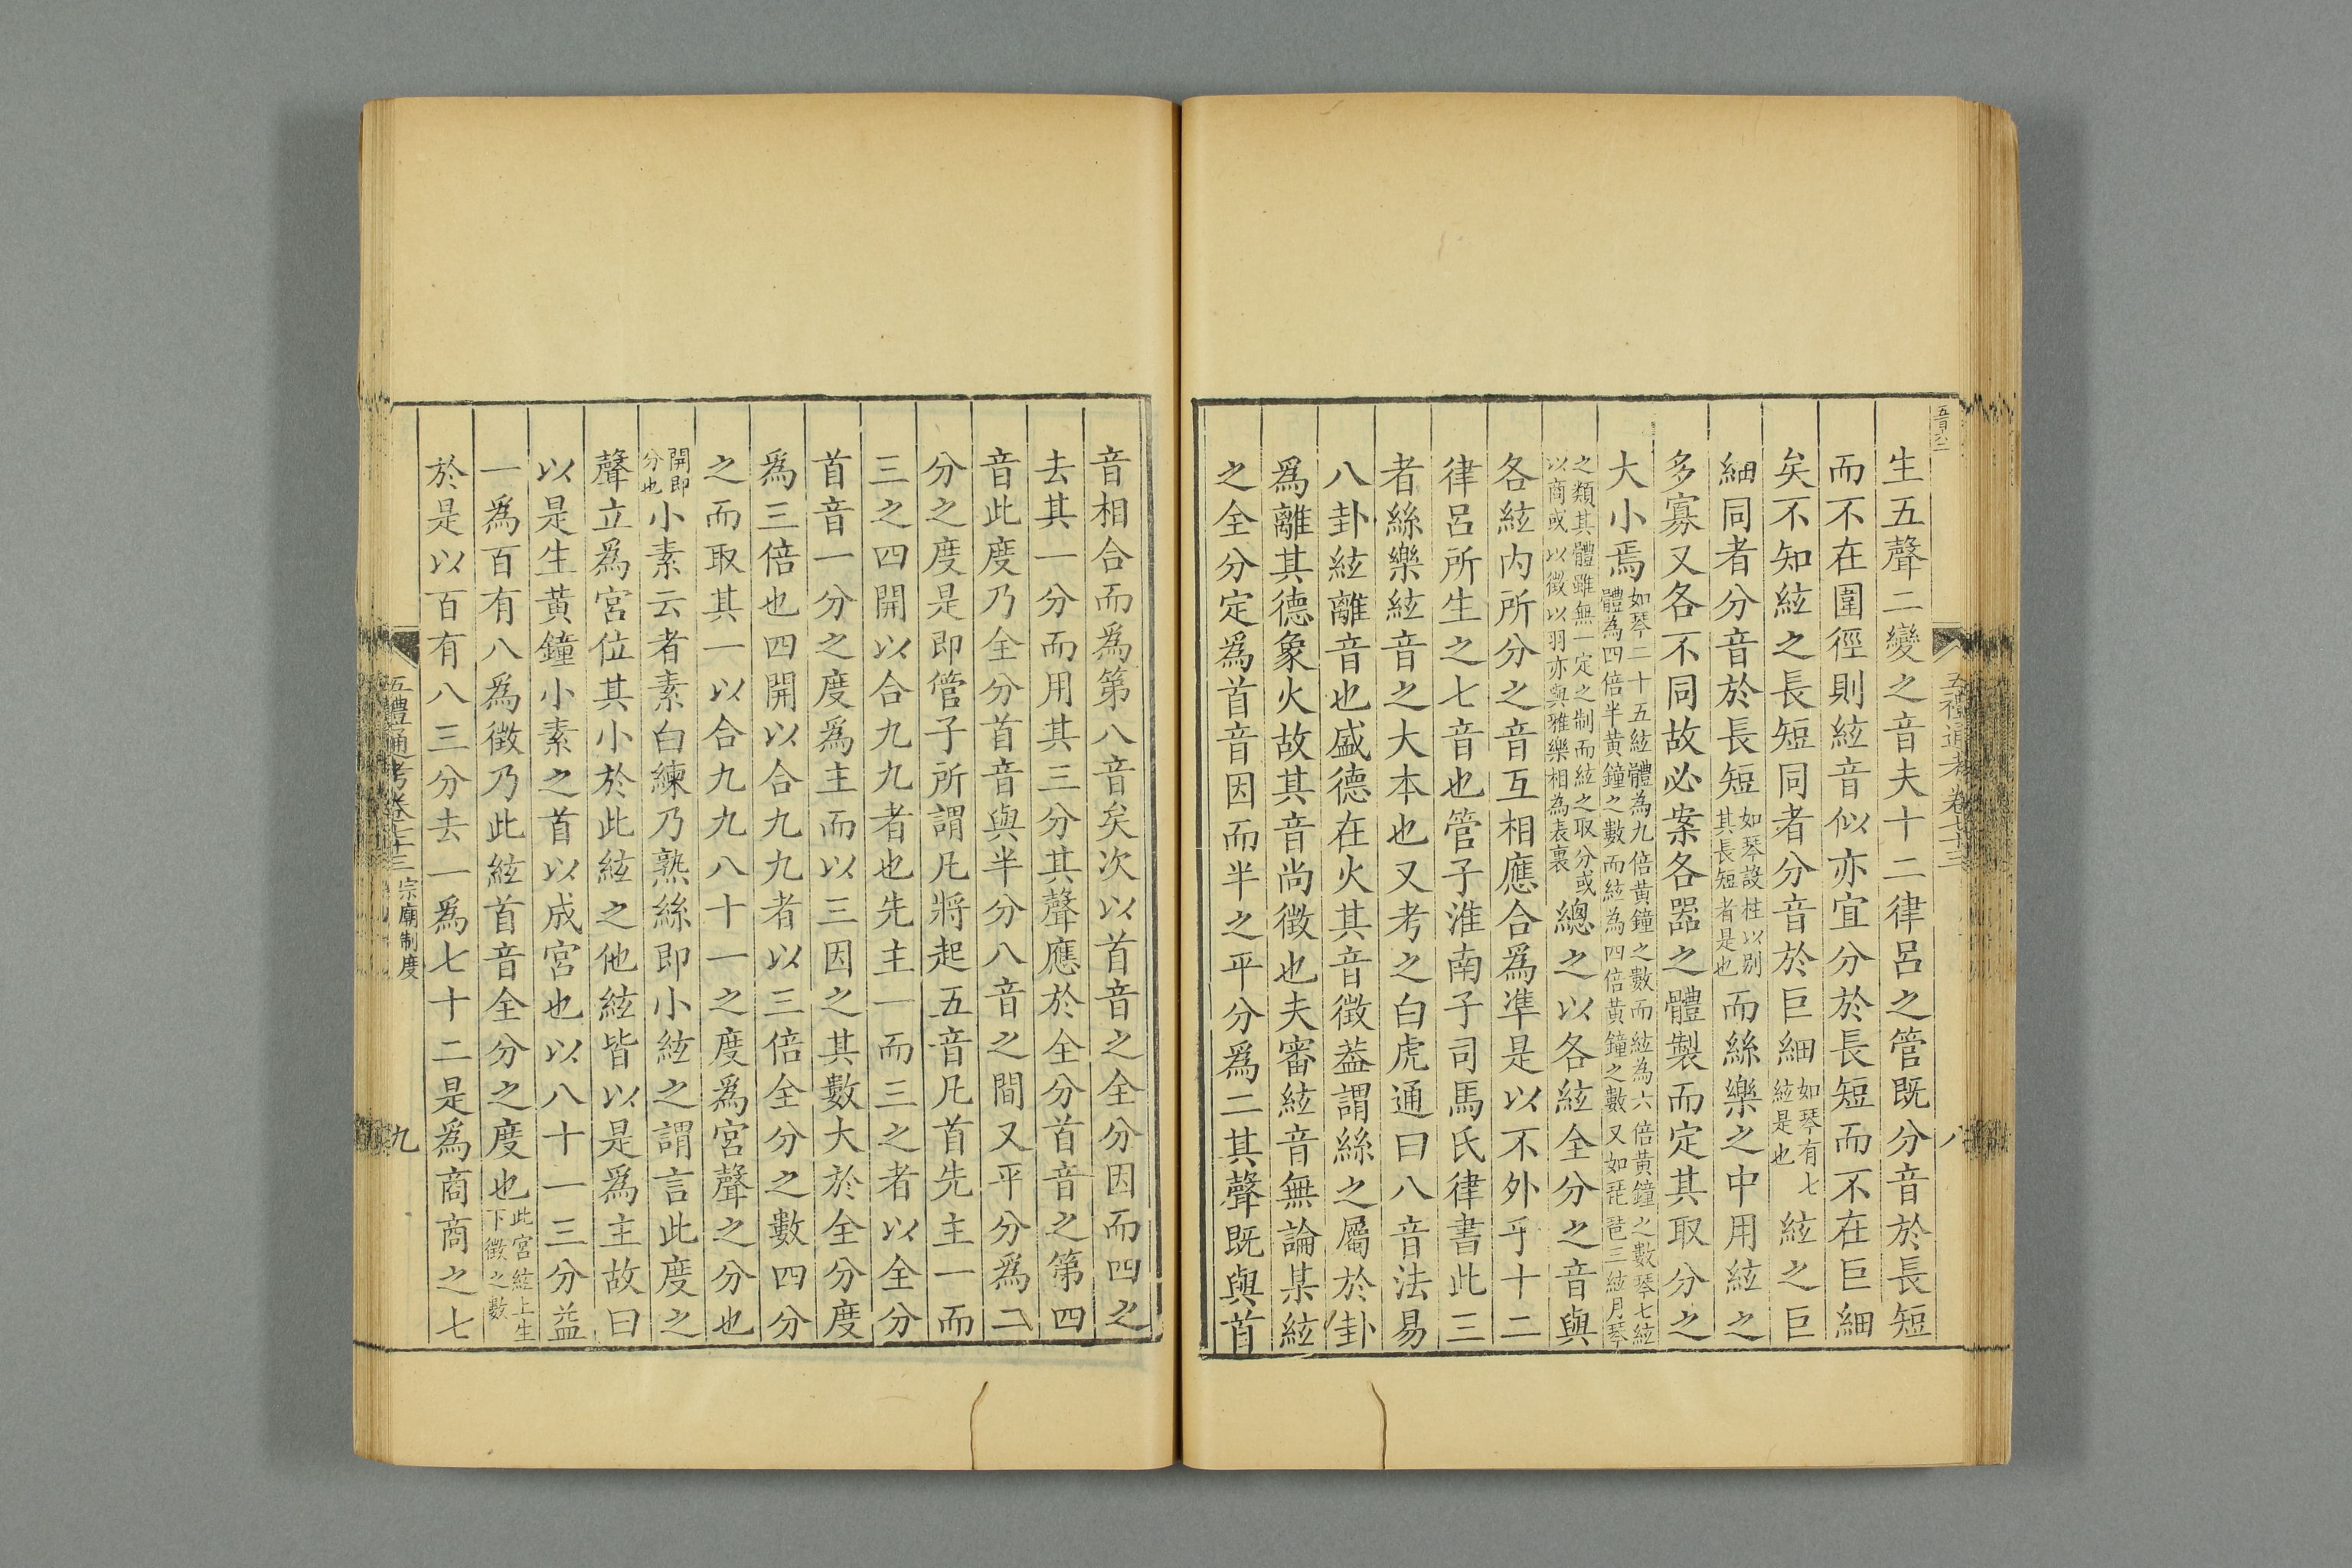 生五聲二變之音夫十二律呂之管既分音於長短
而不在圍徑則絃音似亦宜分於長短而不在巨細
矣不知絃之長短同者分音於巨細如琴有七絃是也絃之巨
細同者分音於長短如琴設柱以别其長短者是也而絲樂之中用絃之
多寡又各不同故必案各器之體製而定其取分之
大小焉如琴二十五絃體為九倍黃鐘之數而絃為六倍黃鐘之數琴七絃體為四倍半黃鐘之數而絃為四倍黃鐘之數又如琵琶三絃月琴
之類其體雖無一定之制而絃之取分或以商或以徵以羽亦與雅樂相為表裏總之以各絃全分之音與
各絃内所分之音互相應合爲準是以不外乎十二
律呂所生之七音也管子淮南子司馬氏律書此三
者絲樂絃音之大本也又考之白虎通曰八音法易
八卦絃離音也盛德在火其音徵葢謂絲之屬於卦
爲離其德象火故其音尚徵也夫審絃音無論某絃
之全分定爲首音因而半之平分爲二其聲既與首
五禮通考卷七十三
八
音相合而爲第八音矣次以首音之全分因而四之
去其一分而用其三分其聲應於全分首音之第四
音此度乃全分首音與半分八音之間又平分爲二
分之度是即管子所謂凡將起五音凡首先主一而
三之四開以合九九者也先主一而三之者以全分
首音一分之度爲主而以三因之其數大於全分度
爲三倍也四開以合九九者以三倍全分之數四分
之而取其一以合九九八十一之度爲宮聲之分也
開即分也小素云者素白練乃熟絲即小絃之謂言此度之
聲立爲宮位其小於此絃之他絃皆以是爲主故曰
以是生黃鐘小素之首以成宮也以八十一三分益
一爲百有八爲徵乃此絃首音全分之度也此宮絃上生下徵之數
於是以百有八三分去一爲七十二是爲商商之七
五禮通考卷七十三 宗廟制度
九